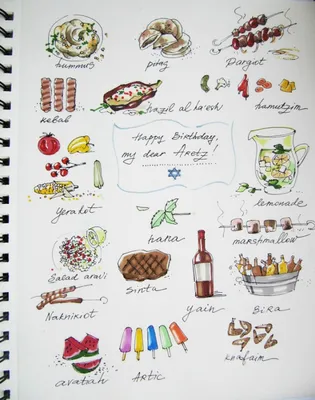 hummus pitaz Pargiot
kebab hazil al ha'esh hamutzim
Happy Birthday,
my dear Aretz
yerakot lemonade
nana marshmallow
Salad aravi sinta
Naknikiot yain Bira
avatiah Artic kenafaim